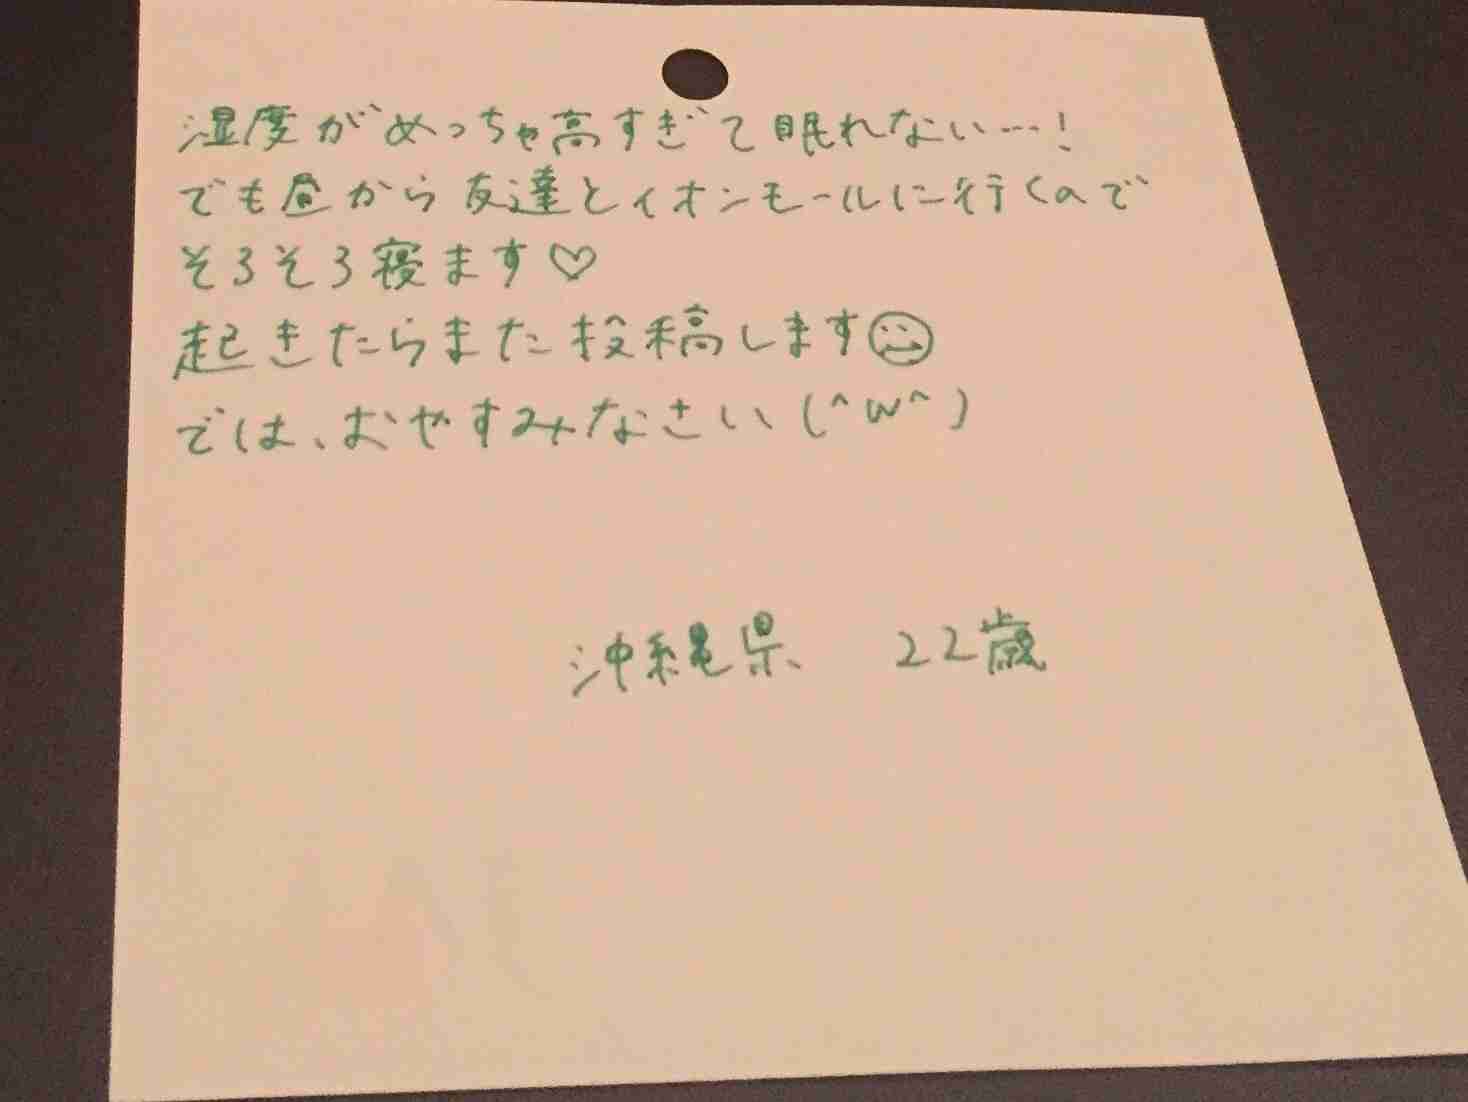 湿度がめっちゃ高すぎて眠れない…!
でも昼から友達とイオンモールに行くので
そろそろ寝ます♡
起きたらまた投稿します☺
では、おやすみなさい(^w^)
沖縄県 22歳